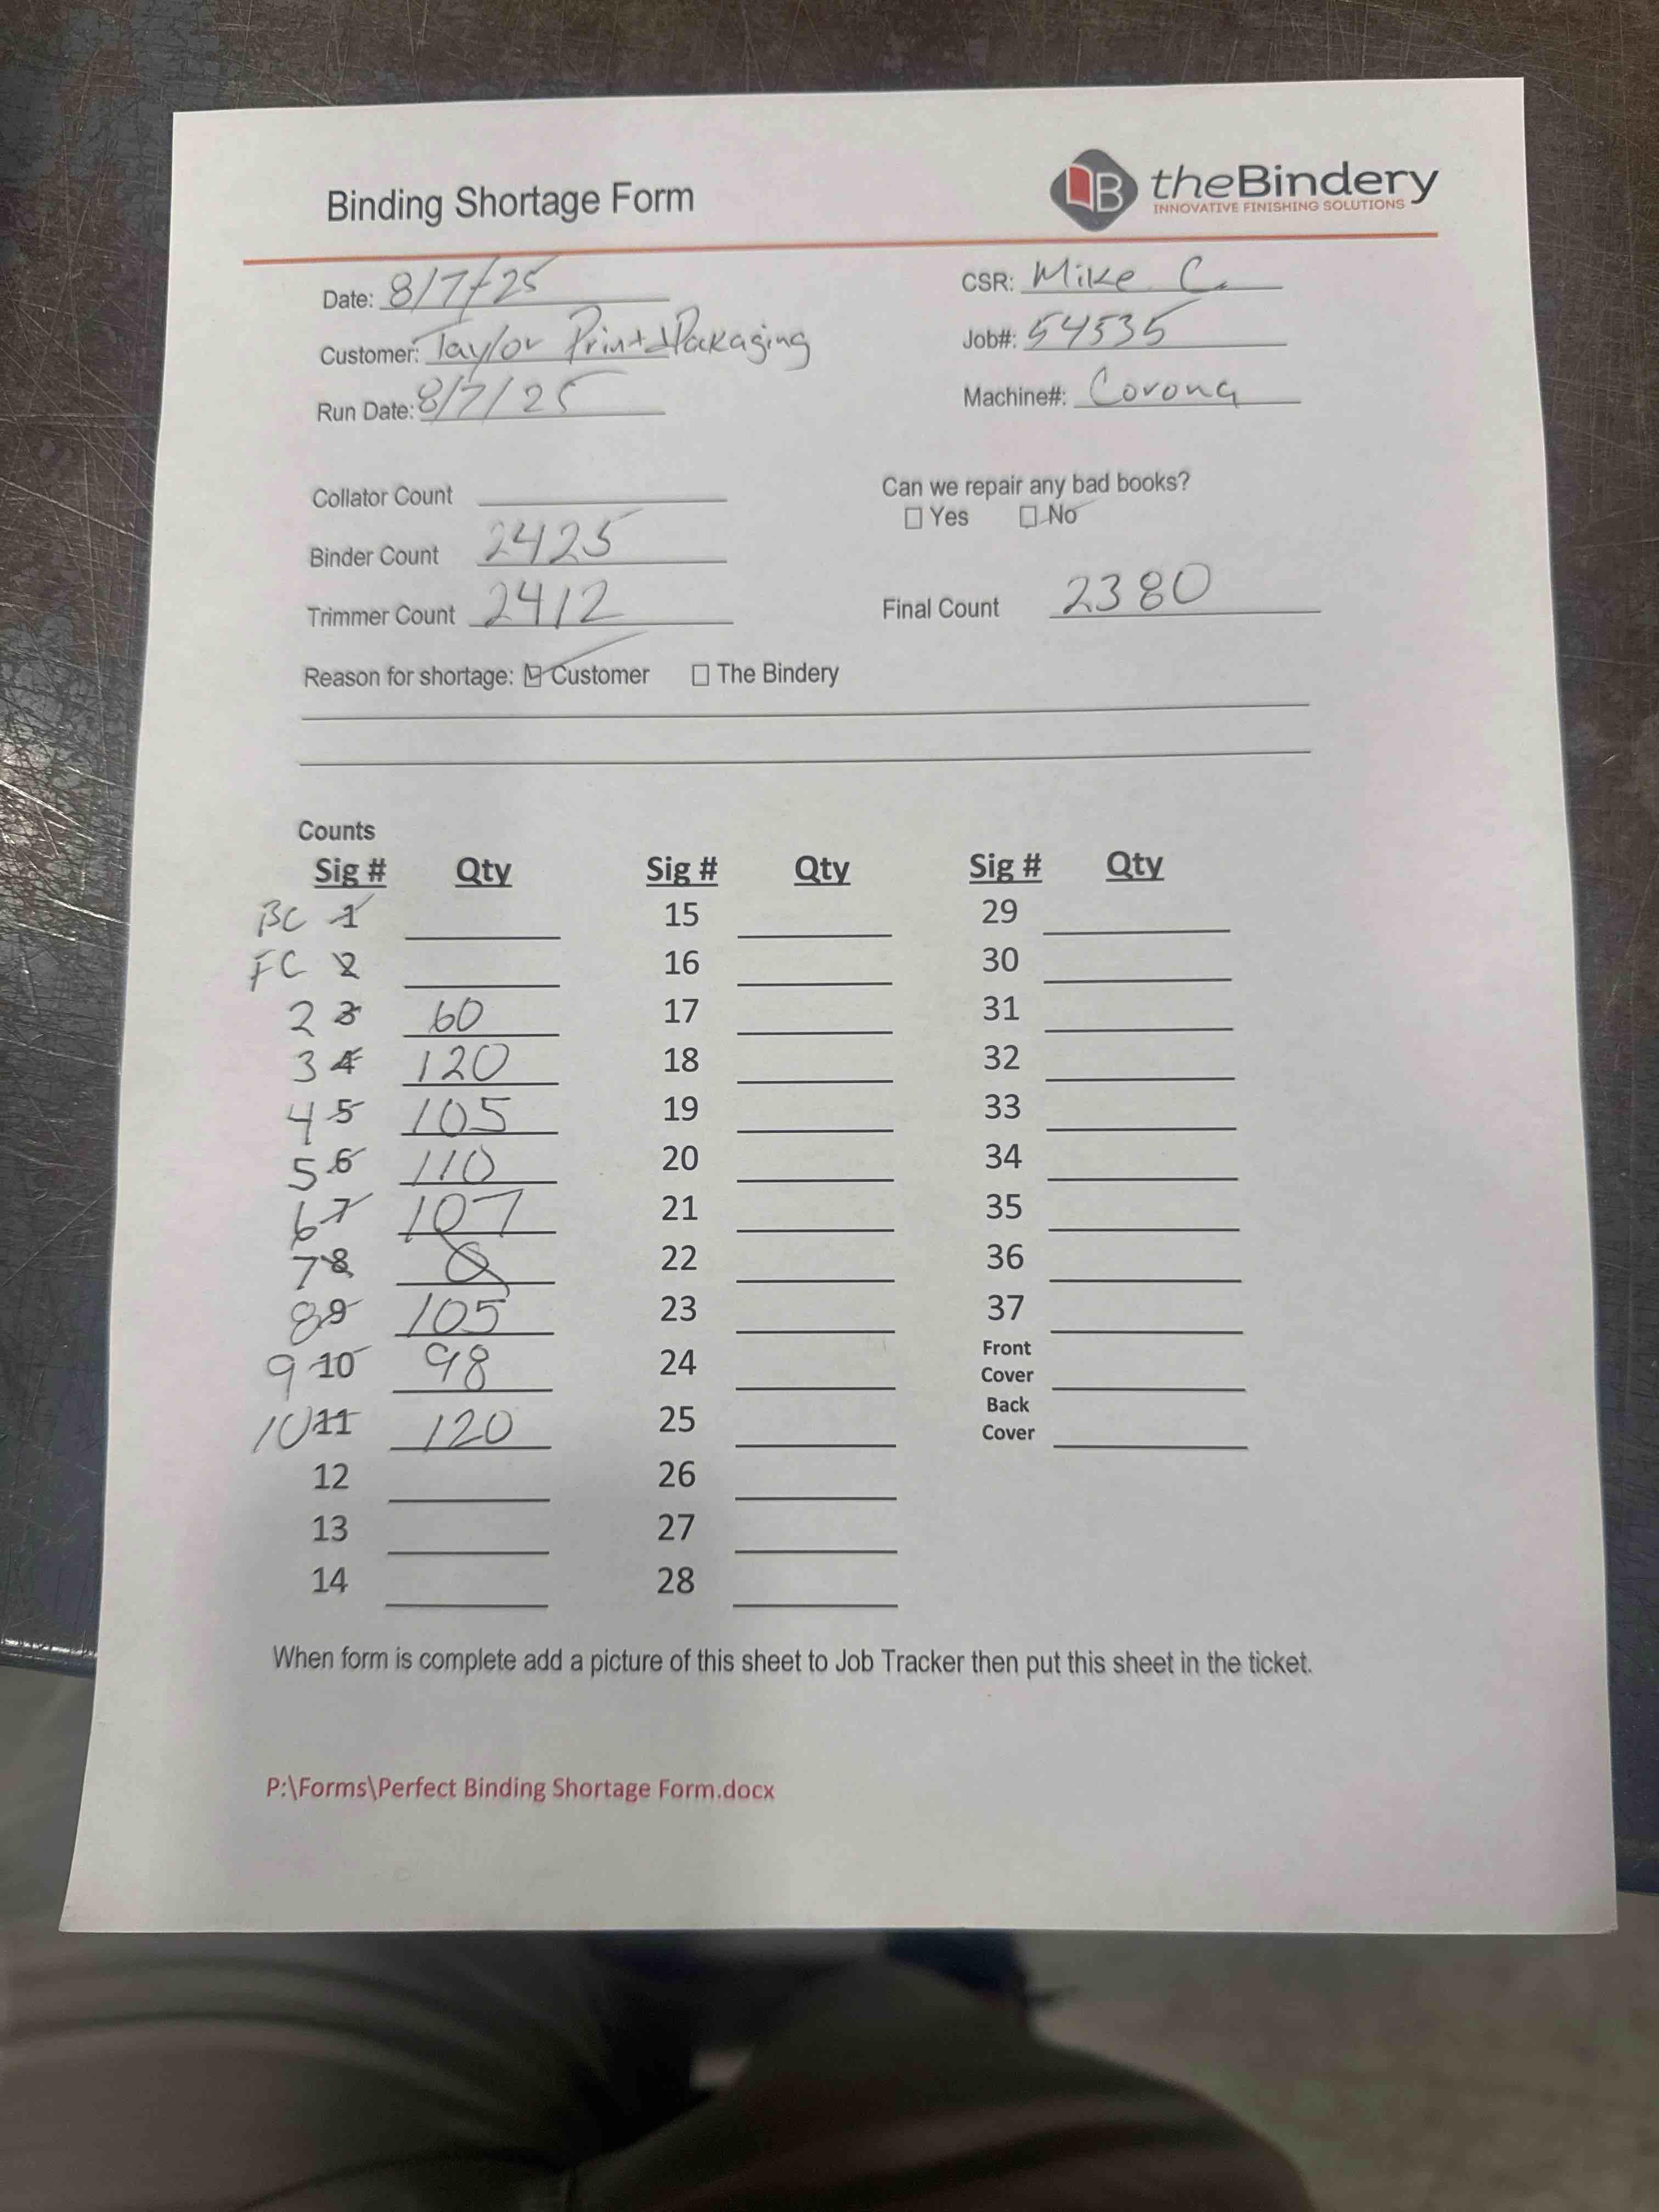 Binding Shortage Form
B theBindery
INNOVATIVE FINISHING SOLUTIONS
Date: 8/7/25 CSR: Mike C.
Customer: Taylor Print & Packaging Job#: 54535
Run Date: 8/7/25 Machine#: Corona
Collator Count Can we repair any bad books?
☐ Yes ☐ No
Binder Count 2425
Trimmer Count 2412 Final Count 2380
Reason for shortage: ☑ Customer ☐ The Bindery
Counts
Sig # Qty Sig # Qty Sig # Qty
BC 1 15 29
FC 2 16 30
2 3 60 17 31
3 4 120 18 32
4 5 105 19 33
5 6 110 20 34
6 7 107 21 35
7 8 0 22 36
8 9 105 23 37
9 10 98 24 Front Cover
10 11 120 25 Back Cover
12 26
13 27
14 28
When form is complete add a picture of this sheet to Job Tracker then put this sheet in the ticket.
P:\Forms\Perfect Binding Shortage Form.docx